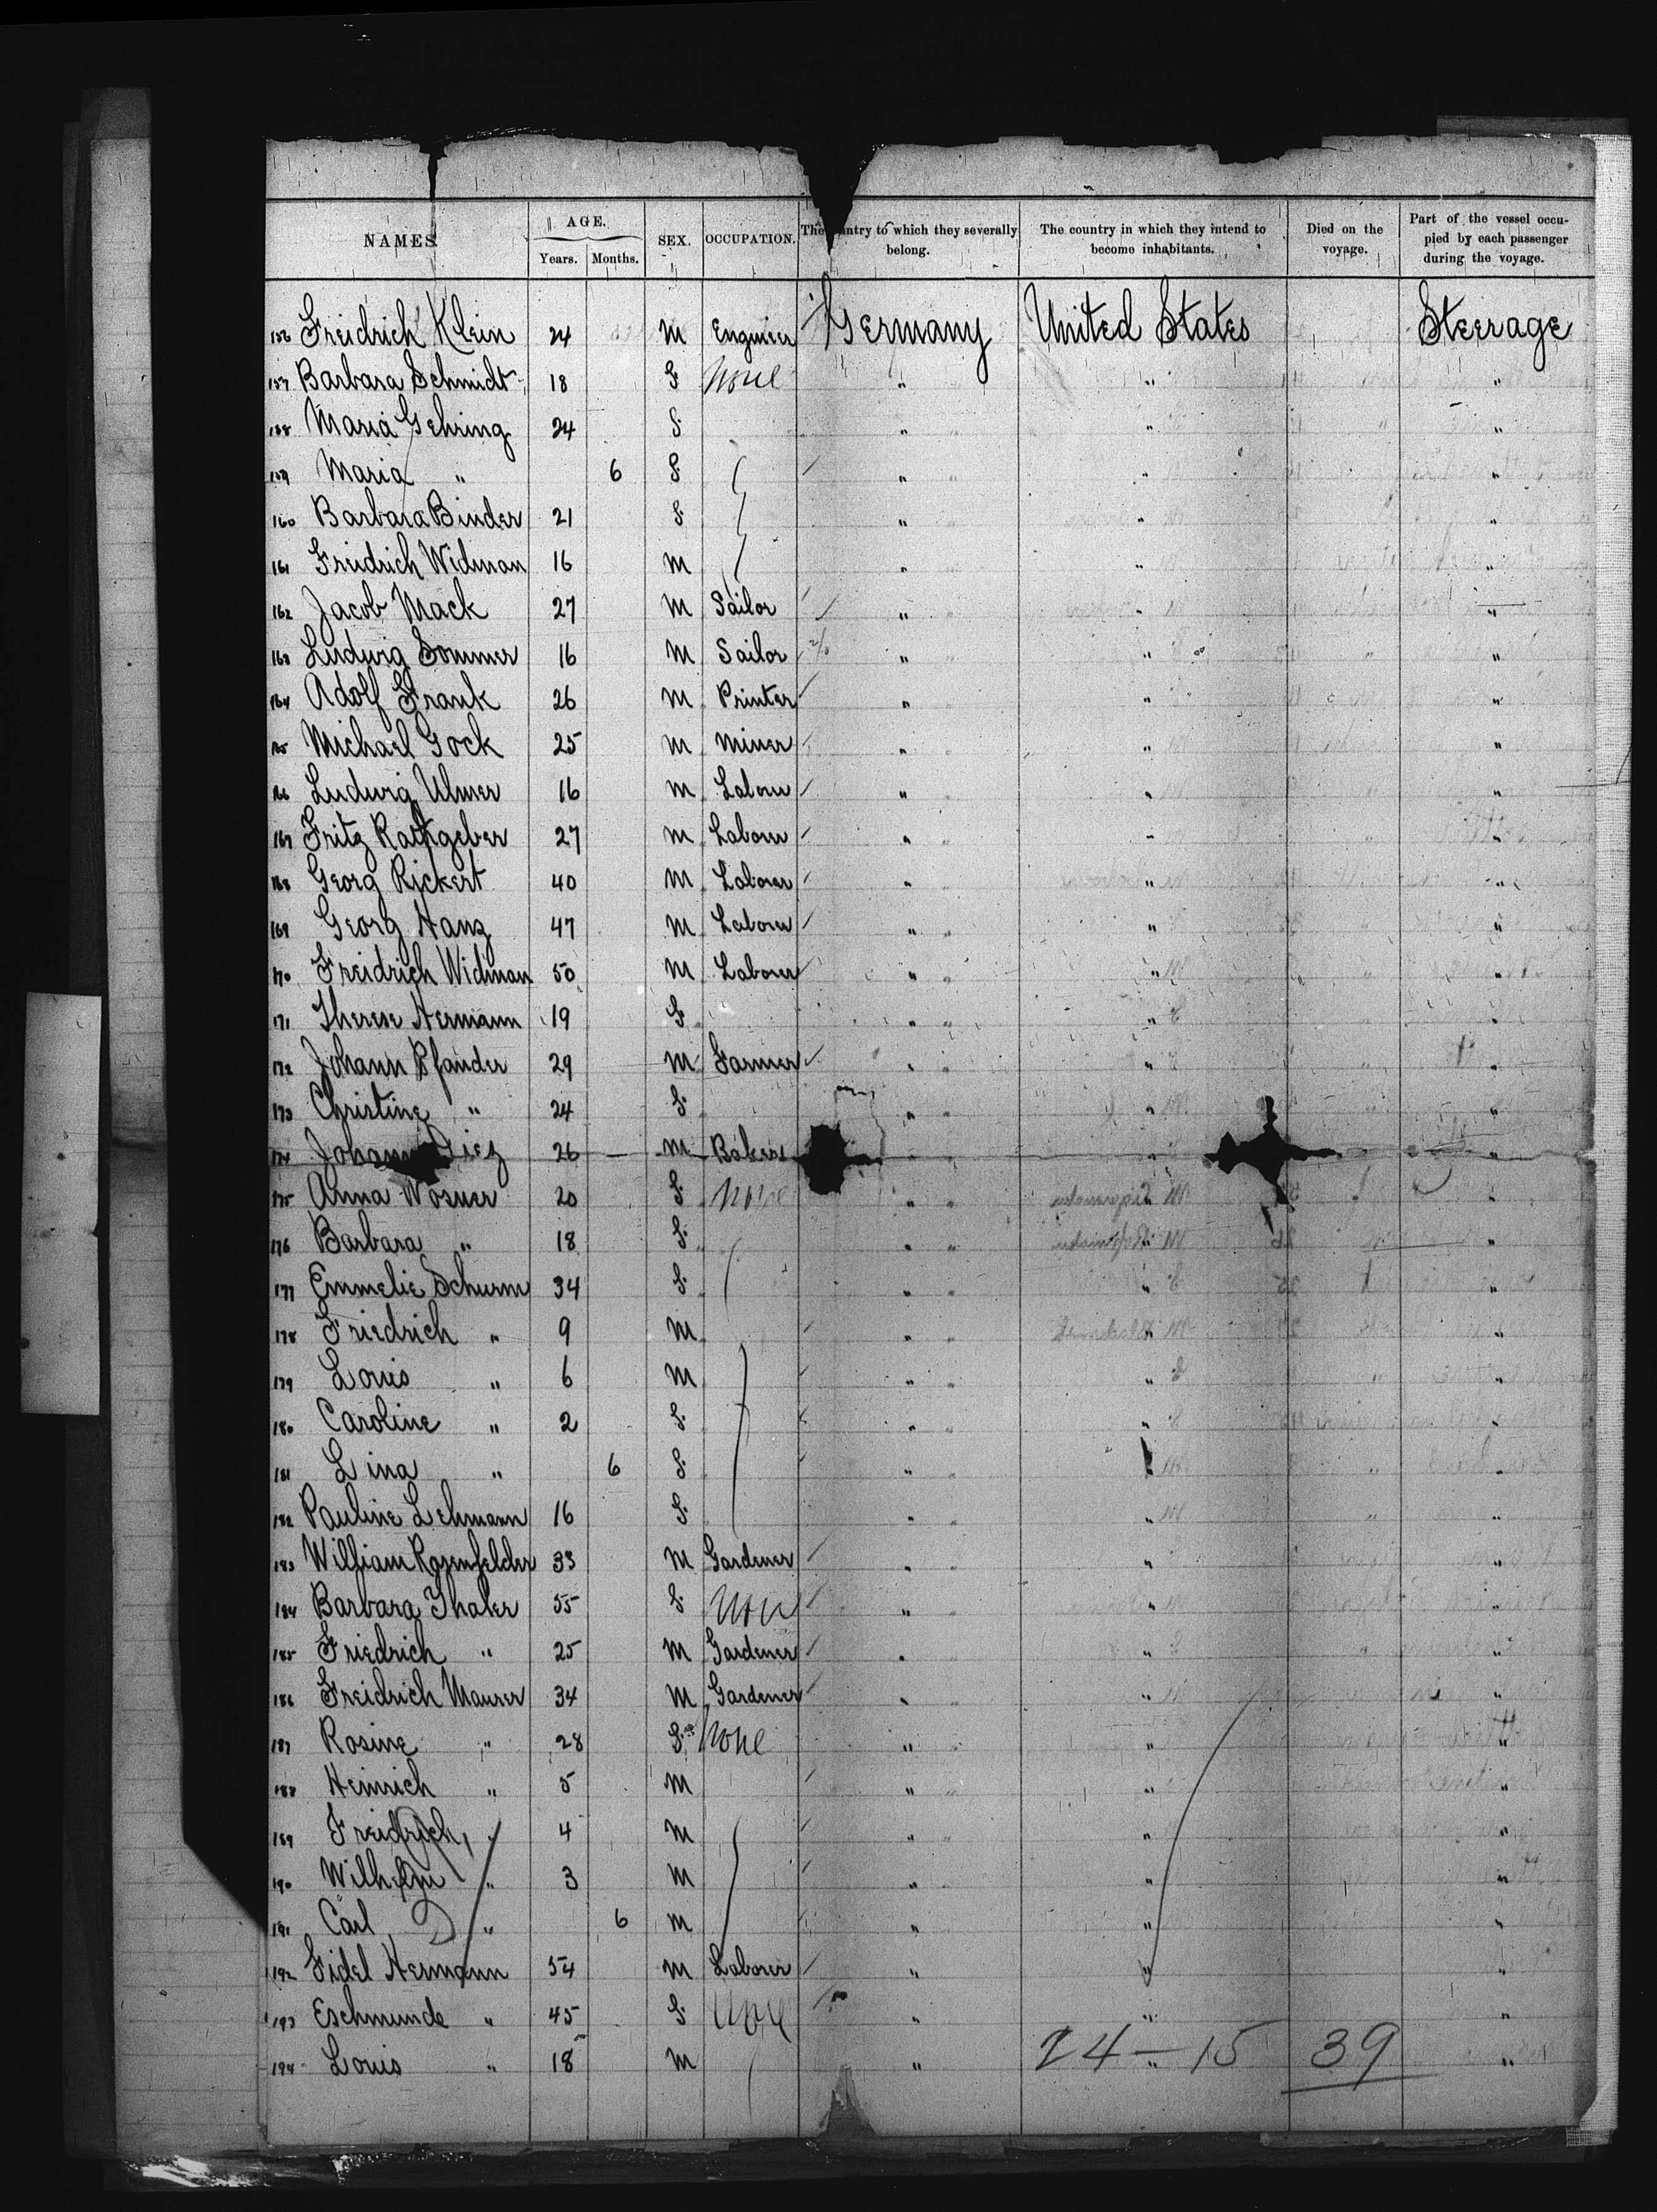 NAMES. AGE. Years. Months. SEX. OCCUPATION. The country to which they severally belong. The country in which they intend to become inhabitants. Died on the voyage. Part of the vessel occupied by each passenger during the voyage.
156 Freidrich Klein 24 M Enginier Germany United States Steerage
157 Barbara Schmidt 18 F None " " "
158 Maria Gehring 24 F " " "
159 Maria " 6 F " " "
160 Barbara Binder 21 F " " "
161 Freidrich Widman 16 M " " "
162 Jacob Mack 27 M Sailor " " "
163 Ludwig Sommer 16 M Sailor " " "
164 Adolf Frank 26 M Printer " " "
165 Michael Gock 25 M Miner " " "
166 Ludwig Ulmer 16 M Laborer " " "
167 Fritz Rathgeber 27 M Laborer " " "
168 Georg Rickert 40 M Laborer " " "
169 Georg Hanz 47 M Laborer " " "
170 Freidrich Widman 50 M Laborer " " "
171 Therese Hermann 19 F " " "
172 Johann Pfander 29 M Farmer " " "
173 Christine " 24 F " " "
174 Johann 26 M Baker " " "
175 Anna Wosner 20 F None " " "
176 Barbara " 18 F " " "
177 Emmelie Schurm 34 F " " "
178 Friedrich " 9 M " " "
179 Louis " 6 M " " "
180 Caroline " 2 F " " "
181 Lina " 6 F " " "
182 Pauline Lehmann 16 F " " "
183 William Rosenfelder 33 M Gardener " " "
184 Barbara Thaler 55 F None " " "
185 Friedrich " 25 M Gardener " " "
186 Freidrich Maurer 34 M Gardener " " "
187 Rosine " 28 F None " " "
188 Heinrich " 5 M " " "
189 Freidrich " 4 M " " "
190 Wilhelm " 3 M " " "
191 Carl " 6 M " " "
192 Fidel Hermann 54 M Laborer " " "
193 Eschmunde " 45 F None " " "
194 Louis " 18 M " " "
24 - 15 39